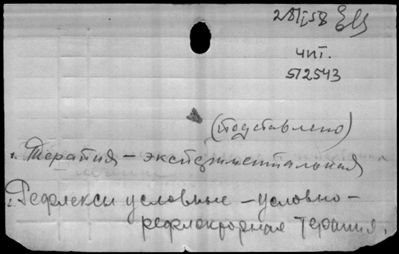 28/I 58
чит.
512543
(подставлено)
1. Терапия - экспериментальная
2. Рефлексы условные - условно-
рефлекторная терапия.